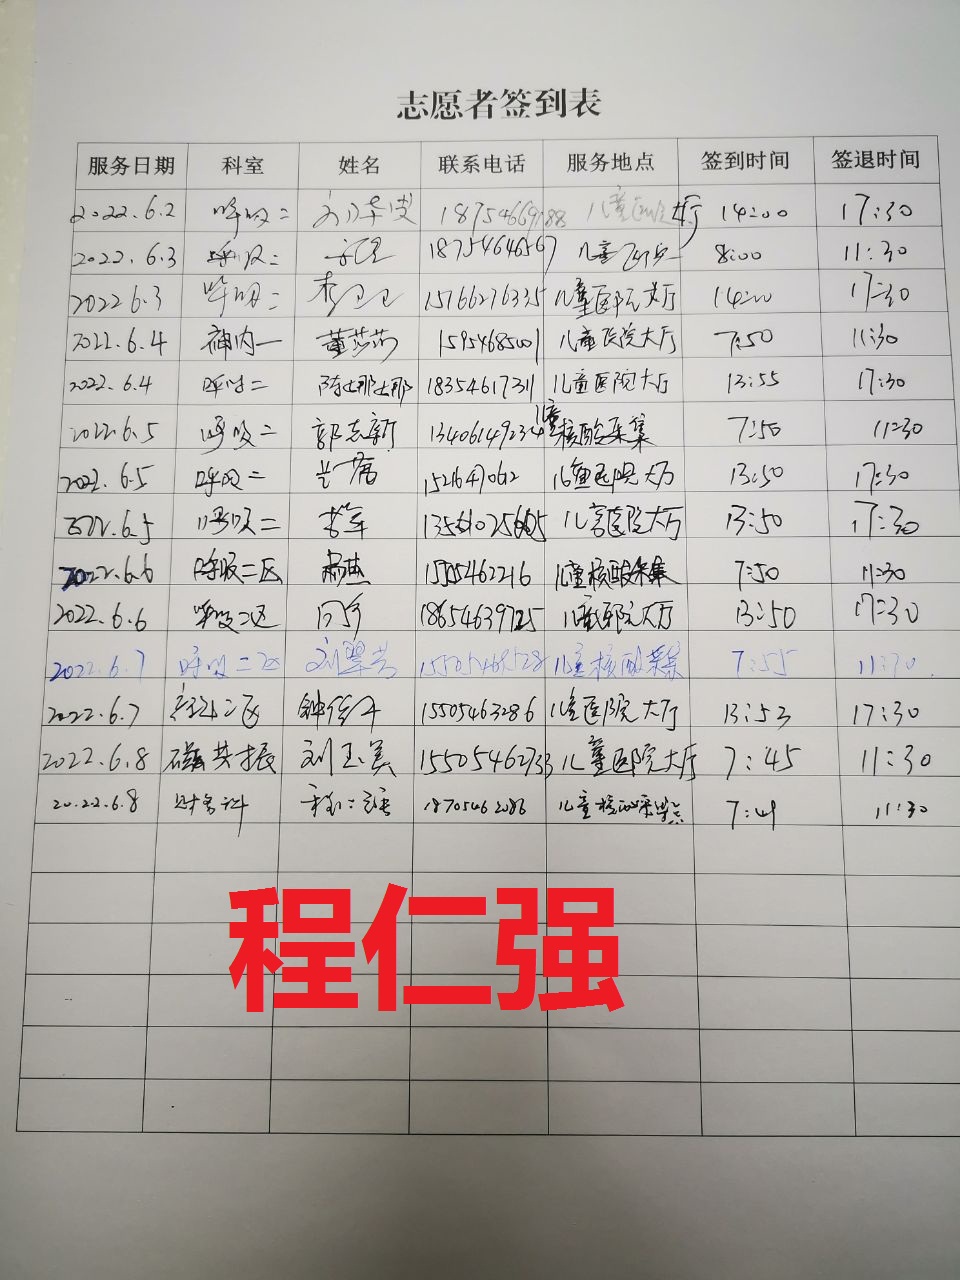 志愿者签到表
服务日期 科室 姓名 联系电话 服务地点 签到时间 签退时间
2022.6.2 呼吸二 14:00 17:30
2022.6.3 呼吸二 18754646567 儿童医院 8:00 11:30
2022.6.3 呼吸二 李卫卫 15766276335 儿童医院大厅 14:00 17:30
2022.6.4 神内一 董莎莎 15954685001 儿童医院大厅 7:50 11:30
2022.6.4 呼吸二 陈娜娜 18354617311 儿童医院大厅 13:55 17:30
2022.6.5 呼吸二 郭志新 13406149234 儿童核酸采集 7:50 11:30
2022.6.5 呼吸二 儿童医院大厅 13:50 17:30
2022.6.5 呼吸二 李军 儿童医院大厅 13:50 17:30
2022.6.6 呼吸二区 儿童核酸采集 7:50 11:30
2022.6.6 呼吸二区 儿童医院大厅 13:50 17:30
2022.6.7 呼吸二区 刘翠芳 15505468528 儿童核酸采集 7:55 11:30
2022.6.7 二区 15505463286 儿童医院大厅 13:53 17:30
2022.6.8 磁共振 刘玉美 15505462733 儿童医院大厅 7:45 11:30
2022.6.8 财务科 18705462086 儿童核酸采集点 7:41 11:30
程仁强